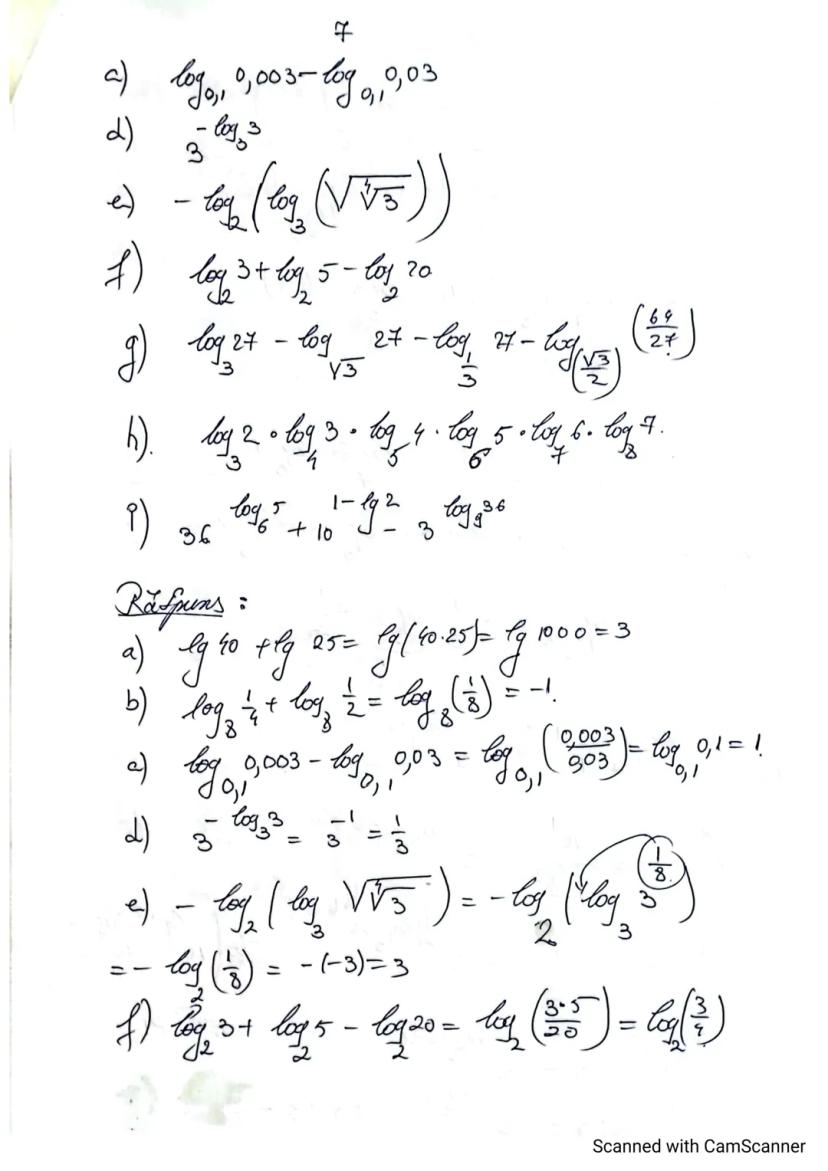 7
c) log_{0,1} 0,003 - log_{0,1} 0,03
d) 3^{-log_3 3}
e) - log_2 (log_3 (√(∜3)))
f) log_2 3 + log_2 5 - log_2 20
g) log_3 27 - log_{√3} 27 - log_{1/3} 27 - log_{(√3/2)} (64/27)
h). log_3 2 · log_4 3 · log_5 4 · log_6 5 · log_7 6 · log_8 7.
i) 36^{log_6 5} + 10^{1 - lg 2} - 3^{log_9 36}
:
a) lg 40 + lg 25 = lg(40·25) = lg 1000 = 3
b) log_8 1/4 + log_8 1/2 = log_8 (1/8) = -1.
c) log_{0,1} 0,003 - log_{0,1} 0,03 = log_{0,1} (0,003/0,03) = log_{0,1} 0,1 = 1
d) 3^{-log_3 3} = 3^{-1} = 1/3
e) - log_2 (log_3 √(∜3)) = - log_2 (log_3 3^{1/8})
= - log_2 (1/8) = -(-3) = 3
f) log_2 3 + log_2 5 - log_2 20 = log_2 (3·5/20) = log_2 (3/4)
Scanned with CamScanner